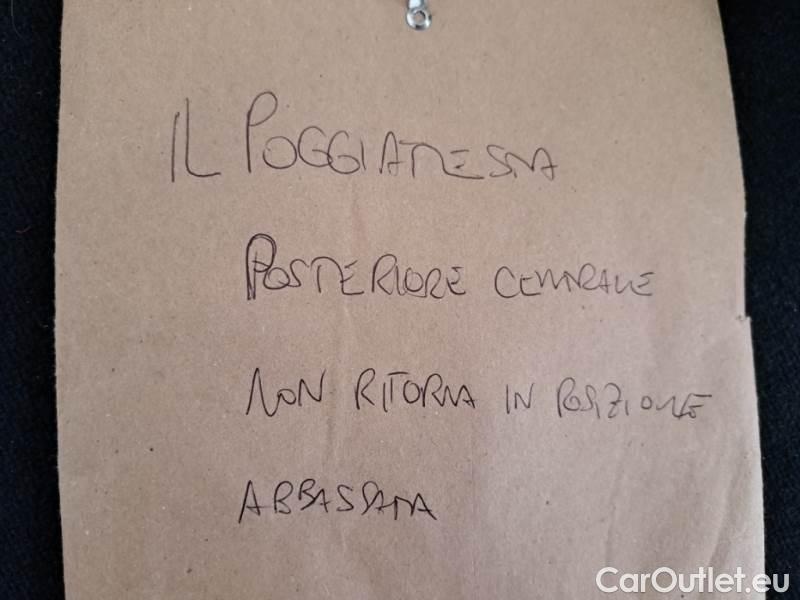 IL POGGIATESTA
POSTERIORE CENTRALE
NON RITORNA IN POSIZIONE
ABBASSATA
CarOutlet.eu